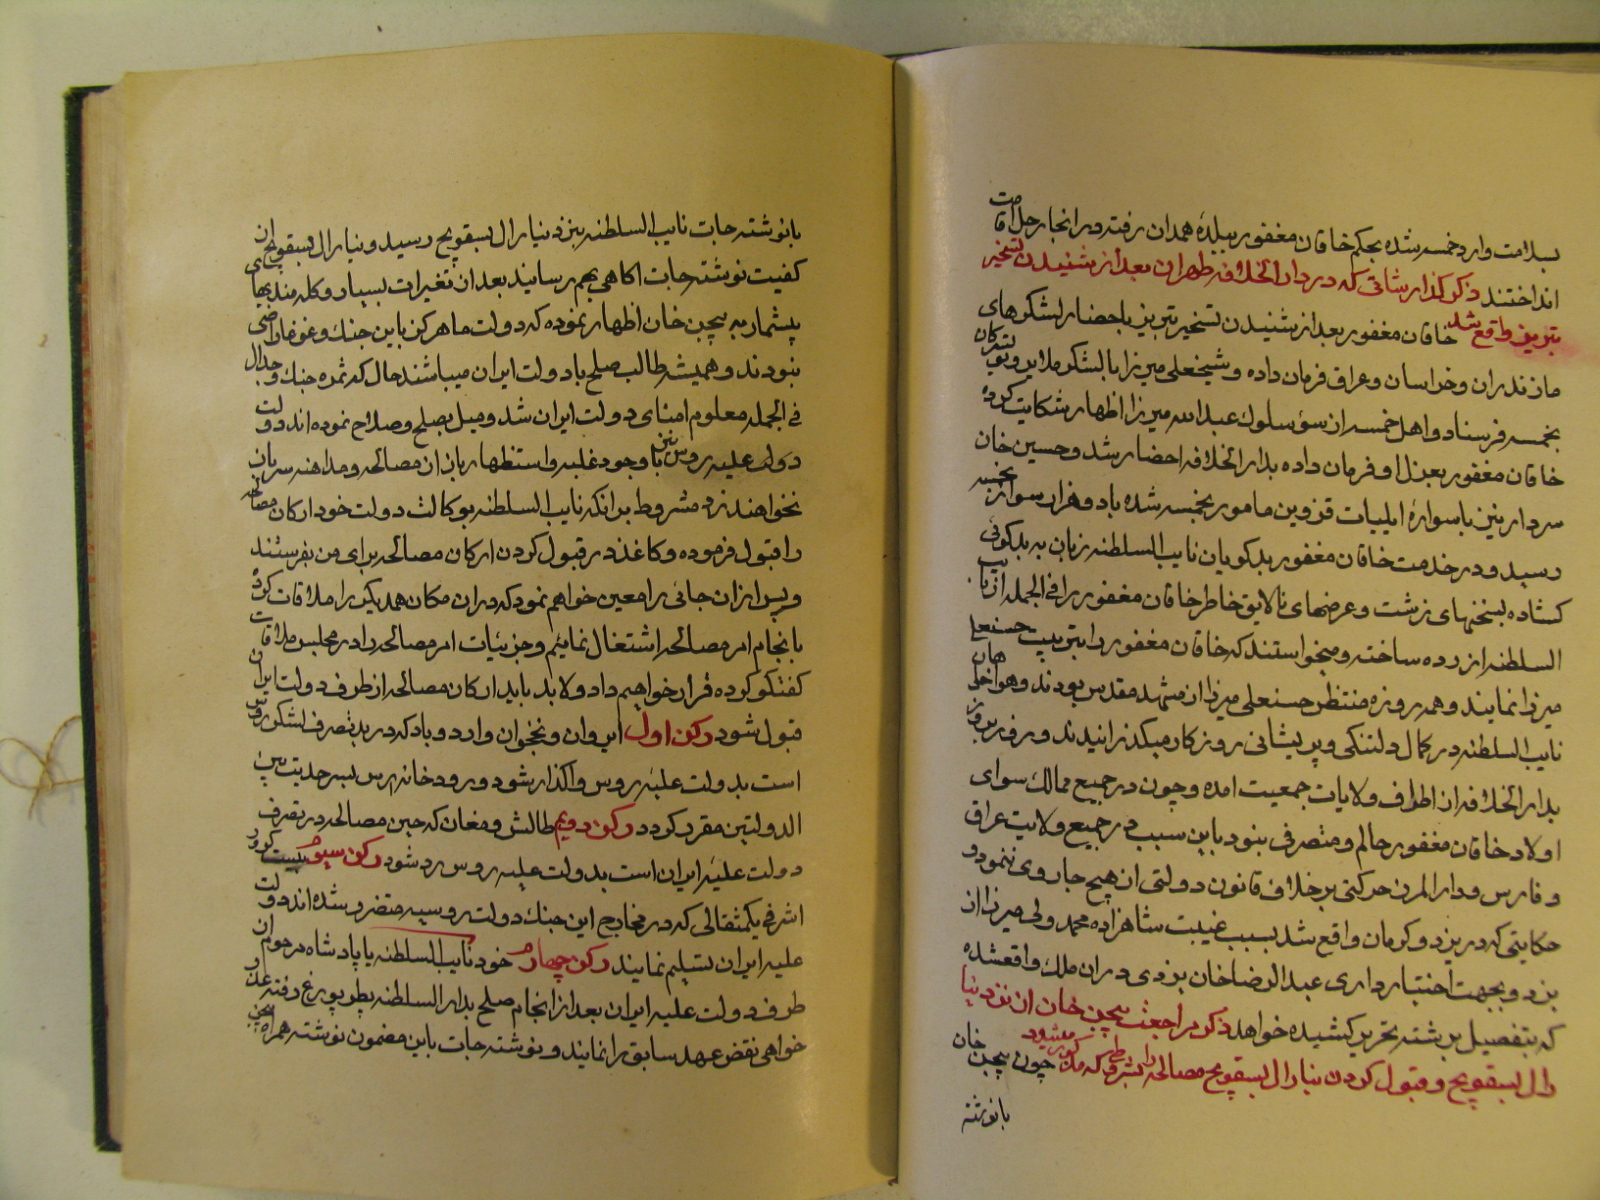 بسلامت وارد خمسه شده بحکم خاقان مغفور ببلدهٔ همدان رفته در انجا رحل اقامت
انداختند ذکر گذارشاتی که در دار الخلافه طهران بعد از شنیدن تسخیر
تبریز واقع شد خاقان مغفور بعد از شنیدن تسخیر تبریز باحضار لشکرهای
مازندران و خراسان و عراق فرمان داده و شیخعلی میرزا با لشکر ملایر و تویسرکان
بخمسه فرستاد و اهل خمسه از سوء سلوک عبدالله میرزا اظهار شکایت کرده
خاقان مغفور بعزل او فرمان داده بدار الخلافه احضار شد و حسین خان
سردار نیز با سوارهٔ ایلیات قزوین مامور بخمسه شده با دو هزار سوار بخمسه
رسید و در خدمت خاقان مغفور بدکویان نایب السلطنه زبان به بدکوئی
کشاده بسخنهای زشت و عرضهای نالایق خاطر خاقان مغفور را فی الجمله از نایب
السلطنه ازرده ساخته و میخواستند که خاقان مغفور را بتربیت حسنعلی
میرزا نمایند و همه روزه منتظر حسنعلی میرزا از مشهد مقدس بودند و هواخواهان
نایب السلطنه در کمال دلتنکی و پریشانی روزکار میکذرانیدند و روز بروز
بدار الخلافه از اطراف ولایات جمعیت امده و چون در جمیع ممالک سوای
اولاد خاقان مغفور حاکم و متصرفی نبود باین سبب در جمیع ولایت عراق
و فارس و دار المرز حرکتی بر خلاف قانون دولتی از هیچ جا روی ننمود و
حکایتی که در یزد و کرمان واقع شد بسبب غیبت شاهزاده محمد ولی میرزا از
یزد و بجهت اختیار داری عبد الرضا خان یزدی در ان ملک واقع شده
که بتفصیل برشته تحریر کشیده خواهد ذکر مراجعت بیجن خان از نزد نیا
رال بسقویچ و قبول کردن نیارال بسقویچ مصالحه را بشروطی که مذکور میشود چون بیجن خان
بانوشته
بانوشته جات نایب السلطنه بنزد نیارال بسقویچ رسید و نیارال بسقویچ از
کفیت نوشته جات اکاهی بهم رسانید بعد از تغیرات بسیار و کله مندیهای
بیشمار به بیجن خان اظهار نموده که دولت ما هرکز باین جنک و غوغا راضی
نبودند و همیشه طالب صلح با دولت ایران میباشند حال که ثمره جنک و جدال
فی الجمله معلوم امنای دولت ایران شد و میل بصلح و صلاح نموده اند دولت
دولت علیه روس نیز با وجود غلبه و استظهار زبان از مصالحه و مداهنه سر باز
نخواهند زد مشروط بر انکه نایب السلطنه بوکالت دولت خود ارکان مصالحه
را قبول فرموده و کاغذ در قبول کردن ارکان مصالحه برای من بفرستند
و پس از ان جائی را معین خواهم نمود که در ان مکان همدیکر را ملاقات کرده
بانجام امر مصالحه اشتغال نمائیم و جزئیات امر مصالحه را در مجلس ملاقات
کفتکو کرده قرار خواهیم داد و لابد باید ارکان مصالحه از طرف دولت ایران
قبول شود رکن اول ایروان و نخجوان و اردوباد که در ید تصرف لشکر روس
است بدولت علیهٔ روس واکذار شود و رودخانه ارس بسرحدیت بین
الدولتین مقرر کردد رکن دویم طالش و مغان که حین مصالحه در تصرف
دولت علیهٔ ایران است بدولت علیه روس رد شود رکن سیوم بیست کرور
اشرفی یکمثقالی که در مخارج این جنک دولت روسیه متضرر شده اند دولت
علیه ایران تسلیم نمایند رکن چهارم خود نایب السلطنه یا پادشاه مرحوم از
طرف دولت علیه ایران بعد از انجام صلح بدار السلطنه پطرپورغ رفته عذر
خواهی نقض عهد سابق را نمایند و نوشته جات باین مضمون نوشته همراه بیجن